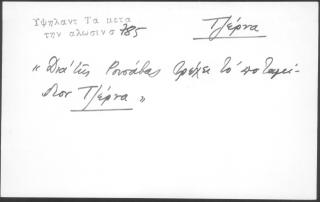 Υψηλαντ Τα μετα
την αλωσιν σ 785
Τζέρνα
« Διά τῆς Ρουσάβας τρέχει τό ποταμεί-
διον Τζέρνα »